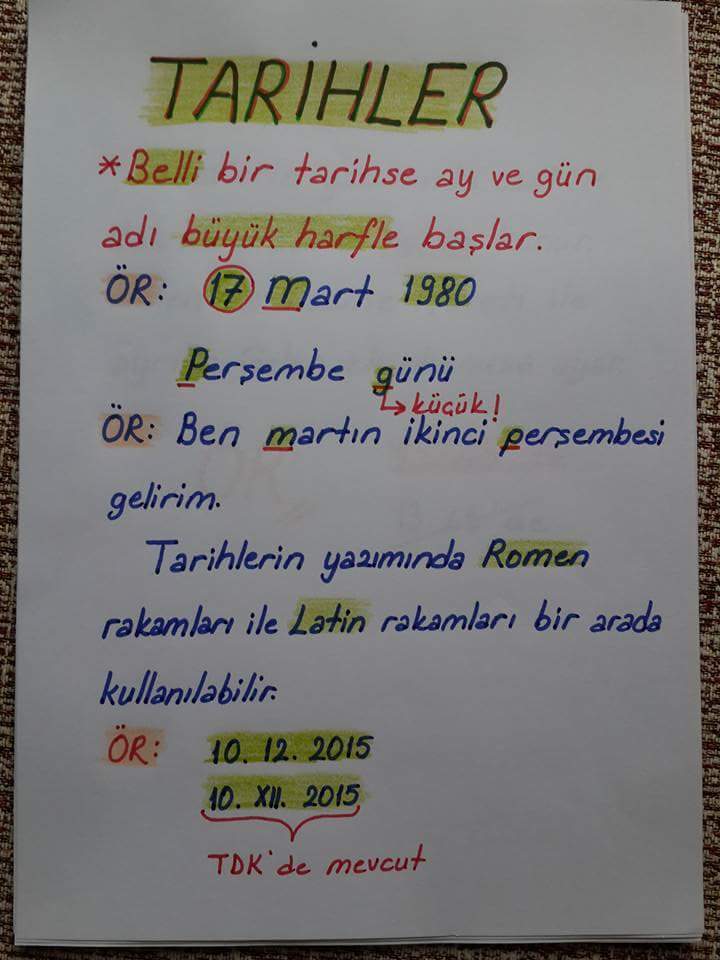 TARİHLER
*Belli bir tarihse ay ve gün
adı büyük harfle başlar.
ÖR: 17 Mart 1980
Perşembe günü
↳küçük!
ÖR: Ben martın ikinci perşembesi
gelirim.
Tarihlerin yazımında Romen
rakamları ile Latin rakamları bir arada
kullanılabilir.
ÖR: 10. 12. 2015
10. XII. 2015
TDK'de mevcut